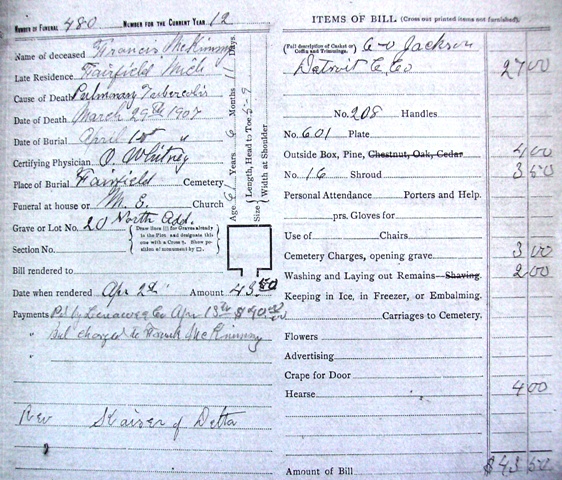 NUMBER OF FUNERAL 480 NUMBER FOR THE CURRENT YEAR 12
Name of deceased Francis McKinney
Late Residence Fairfield Mich
Cause of Death Pulmonary Tubercolis
Date of Death March 29th 1907
Date of Burial April 1st "
Certifying Physician O. Whitney
Place of Burial Fairfield Cemetery
Funeral at house or M. E. Church
Grave or Lot No. 20 North Add.
Section No.
(Draw lines for Graves already in the Plot and designate this one with a Cross. Show position of monument by □.)
Age 61 Years 6 Months Days
Size (Length, Head to Toe 5-9
(Width at Shoulder
Bill rendered to
Date when rendered Apr 2nd Amount 43.50
Payments Pd by Lenawee Co Apr 13th
" Bal charged to Frank McKinney
"
Rev Kaiser of Delta
ITEMS OF BILL (Cross out printed items not furnished)
(Full description of Casket or Coffin and Trimmings. Jackson
Detroit C. Co 27 00
No. 208 Handles
No. 601 Plate
Outside Box, Pine, Chestnut, Oak, Cedar 4 00
No. 16 Shroud 3 50
Personal Attendance Porters and Help.
prs. Gloves for
Use of Chairs
Cemetery Charges, opening grave 3 00
Washing and Laying out Remains Shaving 2 00
Keeping in Ice, in Freezer, or Embalming.
Carriages to Cemetery.
Flowers
Advertising
Crape for Door
Hearse 4 00
Amount of Bill $43 50